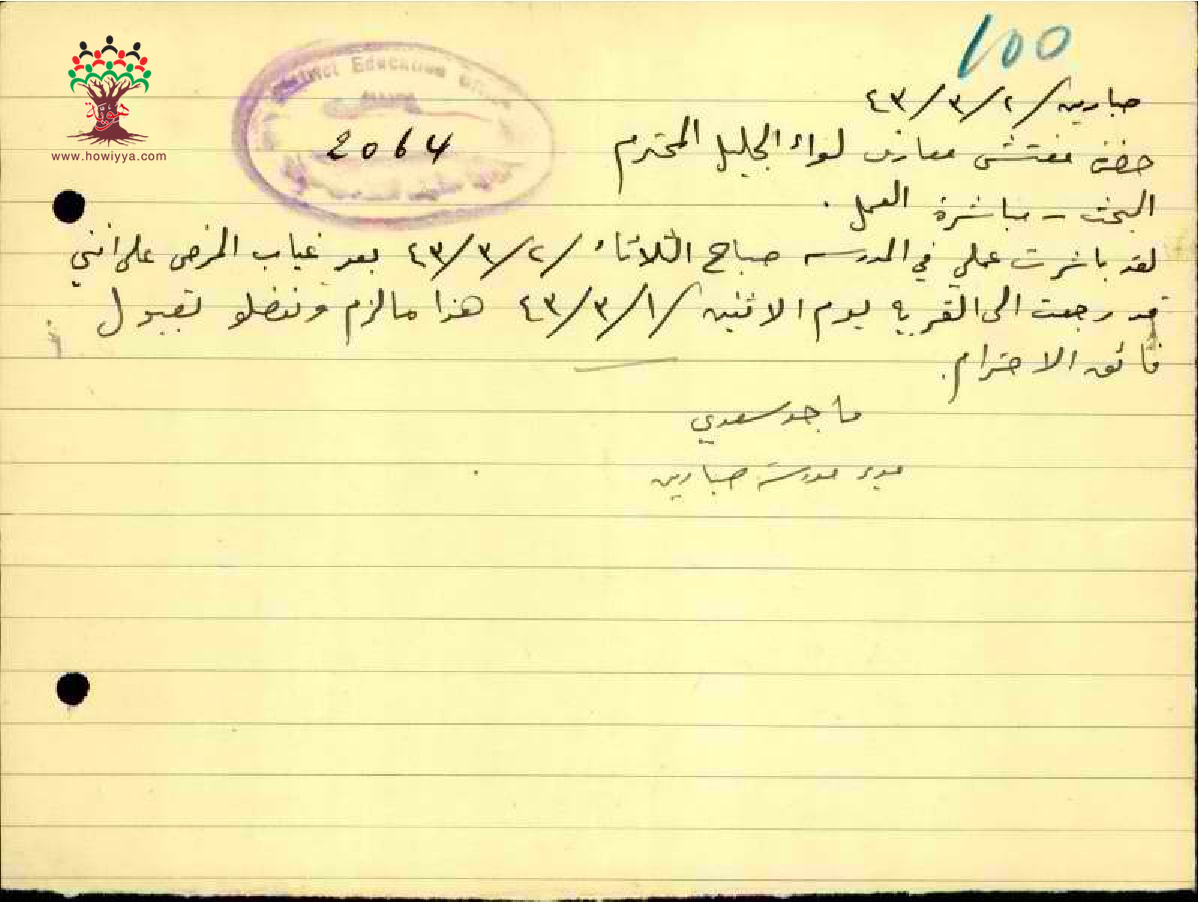 100
صبارين ٤٣/٣/٢
District Education Office
2064
حضرة مفتش معارف لواء الجليل المحترم
البحث - مباشرة العمل.
لقد باشرت عملي في المدرسه صباح الثلاثاء ٤٣/٣/٢ بعد غياب المرض على انني
قد رجعت الى القرية يوم الاثنين ٤٣/٣/١ هذا ما لزم وتفضلو بقبول
فائق الاحترام.
ماجد سعدي
مدير مدرسة صبارين
هوية
www.howiyya.com